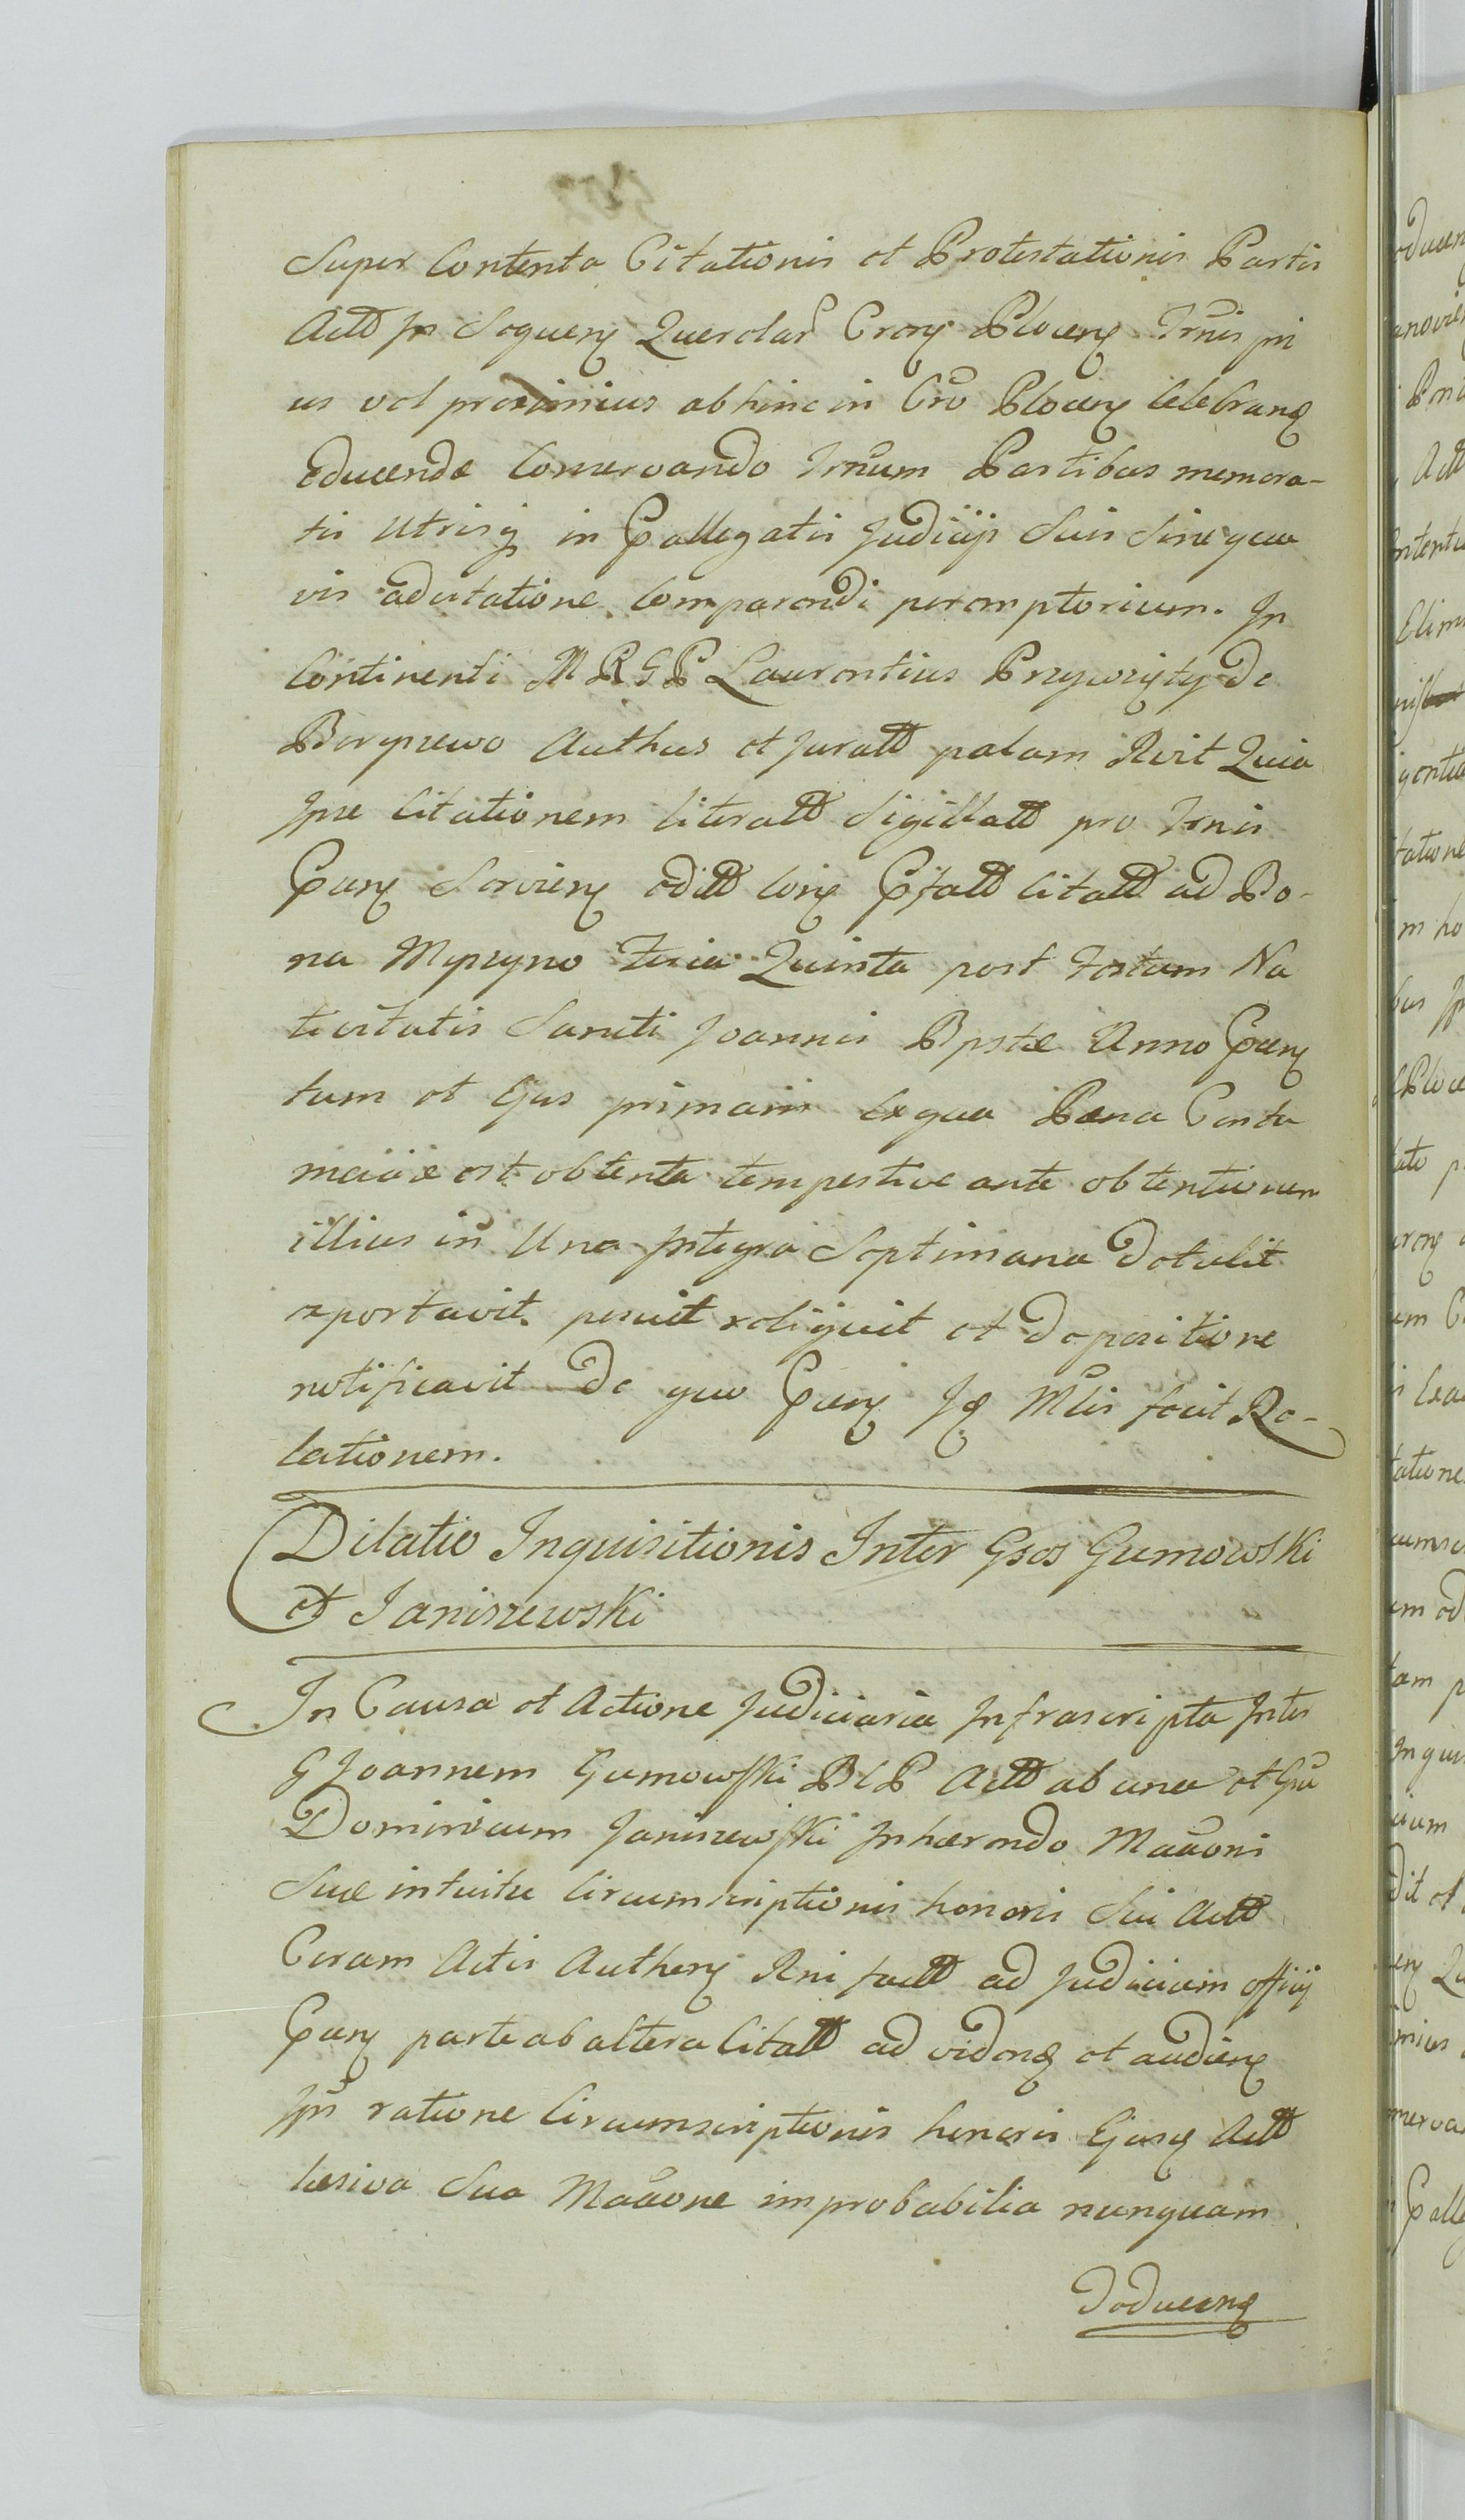 Super Contenta Citationis et Protestationis Partis
Actt in Sequeñ Querelar Cross Ploceñ Trnis pri
us vel proximius abhinc in Cro Ploceñ Celebrand
Educendæ Conservando Trnum Partibus memora-
tis Utrisq in Pallegatis Judicijs Suis Sine qua
vis adcitatione Comparendi peremptorium. In
Continenti M R G P Laurentius Przywizty de
Boryszewo Authus et juratt palam Rvit Quia
Ipse Citationem literatt Sigillatt pro Trnis
Pñ Servieñ editt Coñ Pfatt Citatt ad Bo-
na Myszyno Feria Quinta post Festum Na
tivitatis Sancti Joannis Bpstæ Anno Pñ
tum et Ejus primam ex qua Pæna Contu
maciæ est obtenta tempestive ante obtentionem
illius in Una Integra Septimana Detulit
apportavit posuit reliquit et Depositione
notificavit De quo Pñ Jd Mlis fecit Re-
lationem.
Dilatio Inquisitionis Inter Gsos Gumowski
et Janiszewski
In Causa et Actione Judiciaria Infrascripta Inter
G Joannem Gumowski B C P Actt ab una et Gu
Dominicum Janiszewski Inhærendo Maõoni
Suæ intuitu Circumscriptionis honoris Sui Actt
Coram Actis Autheñ Rni factt ad Judicium officij
Pñ parte ab altera Citatt ad videnđ et audieñ
Ipsi ratione Circumscriptionis honoris Ejusđ Actt
læsiva Sua Maõone improbabilia nunquam
Deducenđ